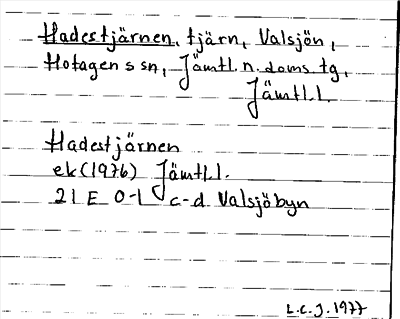 Hadestjärnen, tjärn, Valsjön,
Hotagens sn, Jämtl. n. doms. tg,
Jämtl. l.
Hadestjärnen
ek (1976) Jämtl l.
21 E 0-1 c-d Valsjöbyn
L.C.J. 1977